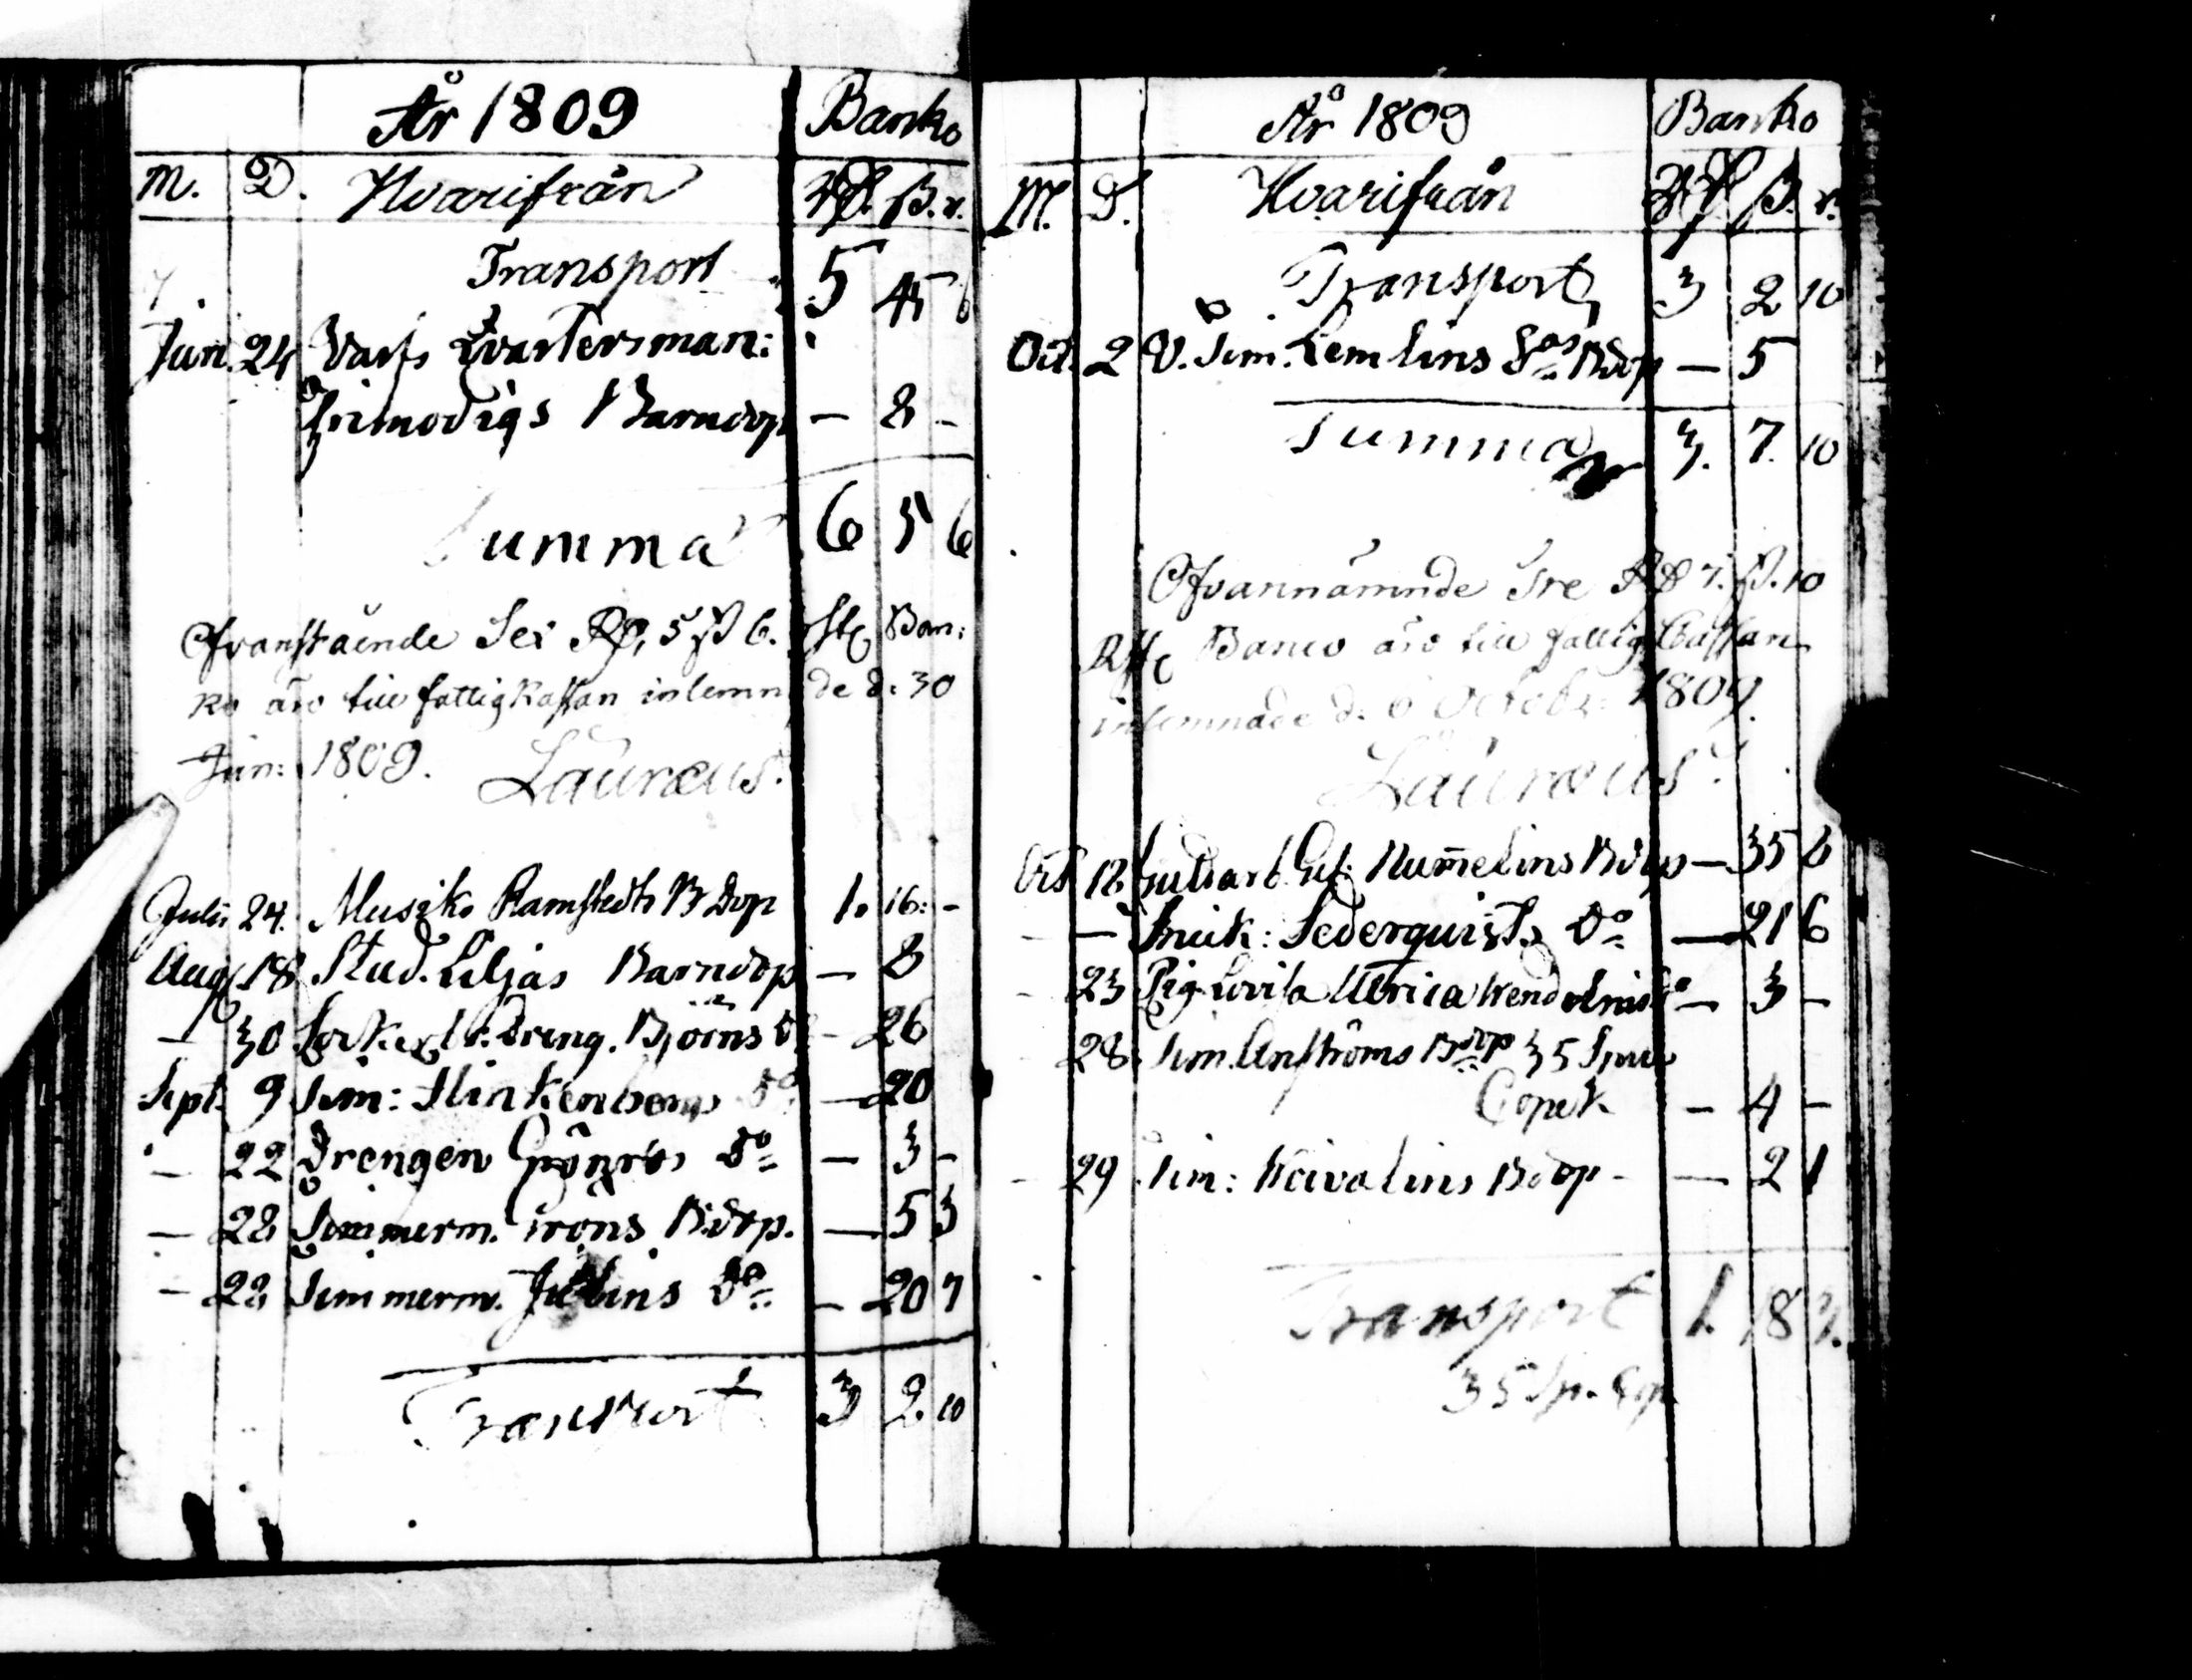 År 1809 Banko
M. D. Hvarifrån Rd. ß. r.
Transport 5 45 6
Jun. 24 Varfs Qvartersman:
Frimodigs Barndop — 8 -
Summa 6 5 6
Ofvanstående Sex Rd, 5 ß 6. rst Ban:
ko äro till fattigKassan inlemnade d: 30
Jun: 1809. Lauræus.
Julii 24. Musik. Ramstedts B Dop 1. 16: -
Aug 18 Stud. Liljas Barndop — 8
— 30 Dreng. Björns Do - 26
Sept. 9 Tim: Flinkenbergs Do — 20
— 22 Drengen Grönros Do — 3 -
— 28 Timmerm. Gröns B:dop. — 5 3
- 28 Timmerm. Julins Do — 20 7
Transport 3 2 10
År 1809 Banko
M. D. Hvarifrån Rd ß. r.
Transport 3 2 10
Oct. 2 V. Tim. Lemlins Bdop — 5
Summa 3. 7. 10
Ofvannämnde Tre Rd 7. ß. 10
Rst Banco äro till fattigCassan
inlemnade d. 6 Octobr: 1809.
Lauræus.
Oct 12. Gul: Numelins Bdop — 35 8
- — Snick: Sederquists Do — 21 6
- 23 Pig. Lovisa Ulrica Do — 3 -
28. Tim. Anströms Bdop 35
Copek — 4 —
- 29 Tim: Koivalins Bdop - — 2 1
Transport 1. 18 3.
35 Sp. Cop